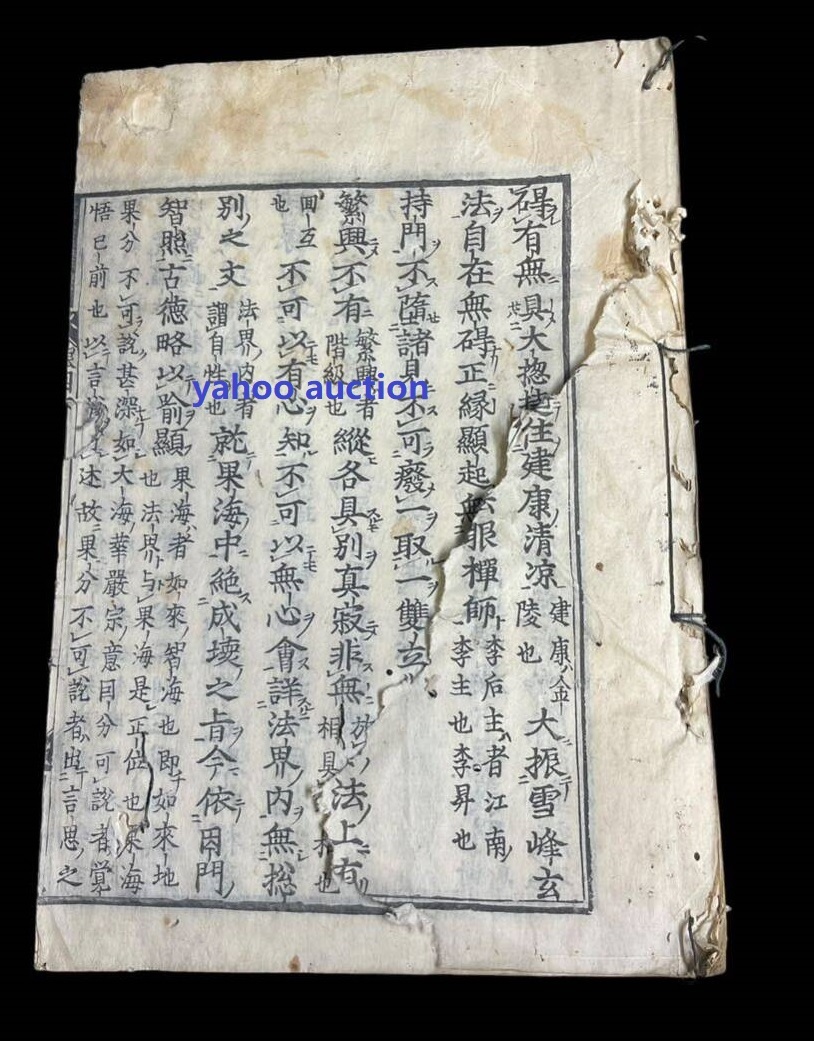 碍有無具大揔持住建康清凉 建康ハ金
陵也 大振雪峰玄
法自在無碍正緣顯起法眼禪師 李后主者江南
李主也李昇也
持門不墮諸見不可廢一取一雙立
法上有
繁興不有 繁興者
階級也 縱各具別真寂非無
相具
回互
也 不可以有心知不可以無心會詳法界内無揔
別之文 法界内者
謂自性也 就果海中絶成壊之旨今依因門
智照古德略以喻顯 果海者如來智海也即如來地
也法界与果海是正位也果海
果分不可説甚深如大海華嚴宗意因分可説者覺
悟已前也以言 述故果分不可説者出言思之
yahoo auction